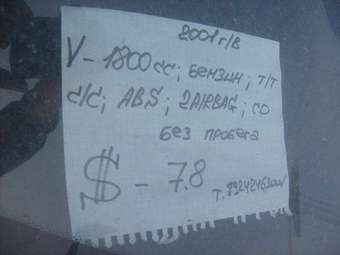 2001 г/в
V - 1800 cc; бензин; т/т
с/с; ABS; 2AIRBAG; CD
без пробега
$ - 7.8